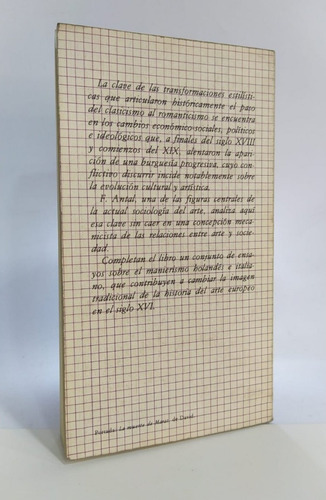 La clave de las transformaciones estilísti-
cas que articularon históricamente el paso
del clasicismo al romanticismo se encuentra
en los cambios económico-sociales, políticos
e ideológicos que, a finales del siglo XVIII
y comienzos del XIX, alentaron la apari-
ción de una burguesía progresiva, cuyo con-
flictivo discurrir incide notablemente sobre
la evolución cultural y artística.
F. Antal, una de las figuras centrales de
la actual sociología del arte, analiza aquí
esa clave sin caer en una concepción meca-
nicista de las relaciones entre arte y socie-
dad.
Completan el libro un conjunto de ensa-
yos sobre el manierismo holandés e italia-
no, que contribuyen a cambiar la imagen
tradicional de la historia del arte europeo
en el siglo XVI.
Portada: La muerte de Marat, de David.